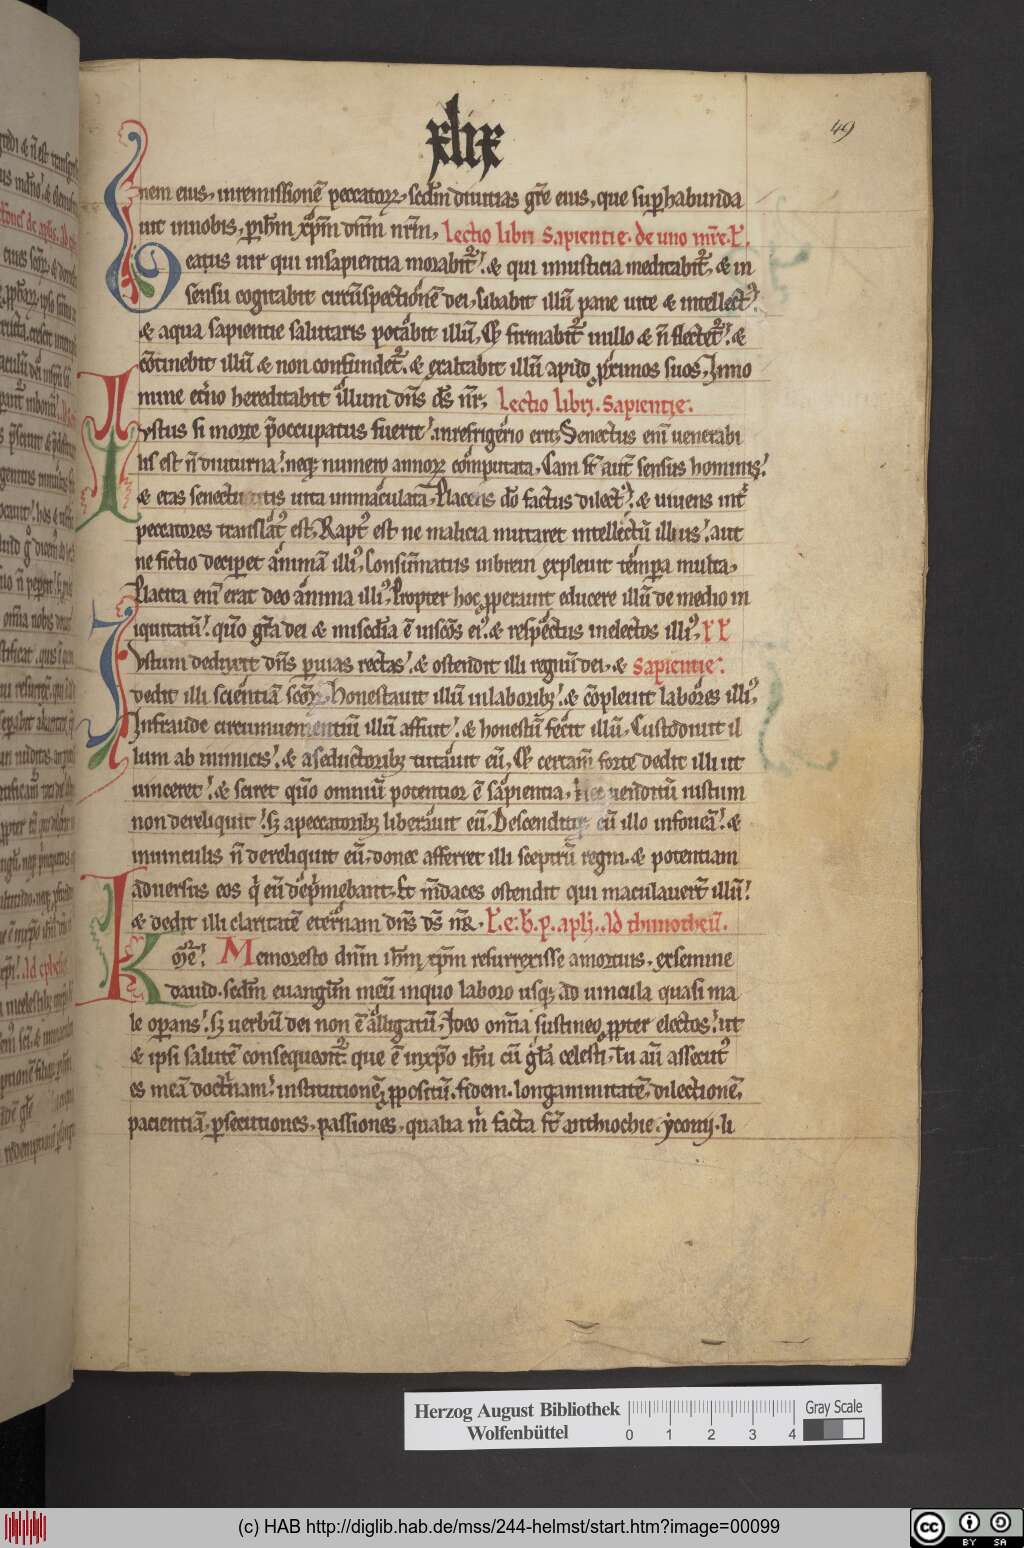 xlix
49
nem eius, inremissionē peccatoꝝ, scd̄m diuitias gr̄e eius, que suꝑhabunda
uit innobis, ꝑ ih̄m xp̄m dn̄m nr̄m, Lectio libri sapientie. de uno mr̄e. ł.
Beatus uir qui insapientia morabit᷑. & qui iniusticia meditabit᷑, & in
sensu cogitabit circūspectionē dei, Cibabit illū pane uite & intellectꝰ.
& aqua sapientie salutaris potabit illū, Et firmabit᷑ inillo & n̄ flectet᷑. &
cōtinebit illū & non confundet᷑. & exaltabit illū apud ꝓximos suos, Inno
mine et̄no hereditabit illum dn̄s ds̄ nr̄, Lectio libri. sapientie.
Iustus si morte p̄occupatus fuerit. inrefrigerio erit, Senectus eni uenerabi
lis est n̄ diuturna. neqꝫ numero annoꝝ computata, Cani st̄ aut̄ sensus hominis.
& etas senectutis uita immaculata, Placens dō factus dilectꝰ. & uiuens int̄
peccatores translatꝰ est, Raptꝰ est ne malicia mutaret intellectū illius. aut
ne fictio deciperet animā illiꝰ, Consūmatus inbreui expleuit tempora multa,
Placita eni erat deo anima illiꝰ, Propter hoc ꝓperauit educere illū de medio in
iquitatū. quō gr̄a dei & misedīa ē inscōs eiꝰ. & respectus inelectos illiꝰ,
Iustum deduxit dn̄s ꝑ uias rectas. & ostendit illi regnū dei, & sapientie.
dedit illi scientiā scōꝝ, Honestauit illū inlaboribꝫ. & cōpleuit labores illiꝰ,
Infraude circumuenientiū illū affuit. & honestū fecit illū, Custodiuit il
lum ab inimicis. & aseductoribꝫ tutauit eū, Et certam̄ forte dedit illi ut
uinceret. & sciret quō omniū potentior ē sapientia, Hec uenditū iustum
non dereliquit. sꝫ apeccatoribꝫ liberauit eū, Descenditqꝫ cū illo infoueā. &
inuinculis n̄ dereliquit eū, donec afferret illi sceptrū regni. & potentiam
aduersus eos q̄ eū deprimebant, Et m̄daces ostendit qui maculauert̄ illū.
& dedit illi claritatē eternam dn̄s ds̄ nr̄. ł. e. b. p. apłi. Ad thimotheū.
Kme. Memoresto dn̄m ih̄m xp̄m resurrexisse amortuis. exsemine
dauid. scd̄m euanglīm meū inquo laboro usqꝫ ad uincula quasi ma
le operans. sꝫ uerbū dei non ē alligatū, Ideo omīa sustineo ꝓpter electos. ut
& ipsi salutē consequant᷑. que ē inxpō ih̄u cū gła celesti, Tu aū assecutꝰ
es meā doctnam. institutionē, ꝓpositū. fidem. longanimitatē, dilectionē,
pacientiā, ꝑsecutiones, passiones, qualia m̄ facta st̄ anthiochie. yconii. li
Herzog August Bibliothek
Wolfenbüttel
0 1 2 3 4
Gray Scale
(c) HAB http://diglib.hab.de/mss/244-helmst/start.htm?image=00099
cc BY SA